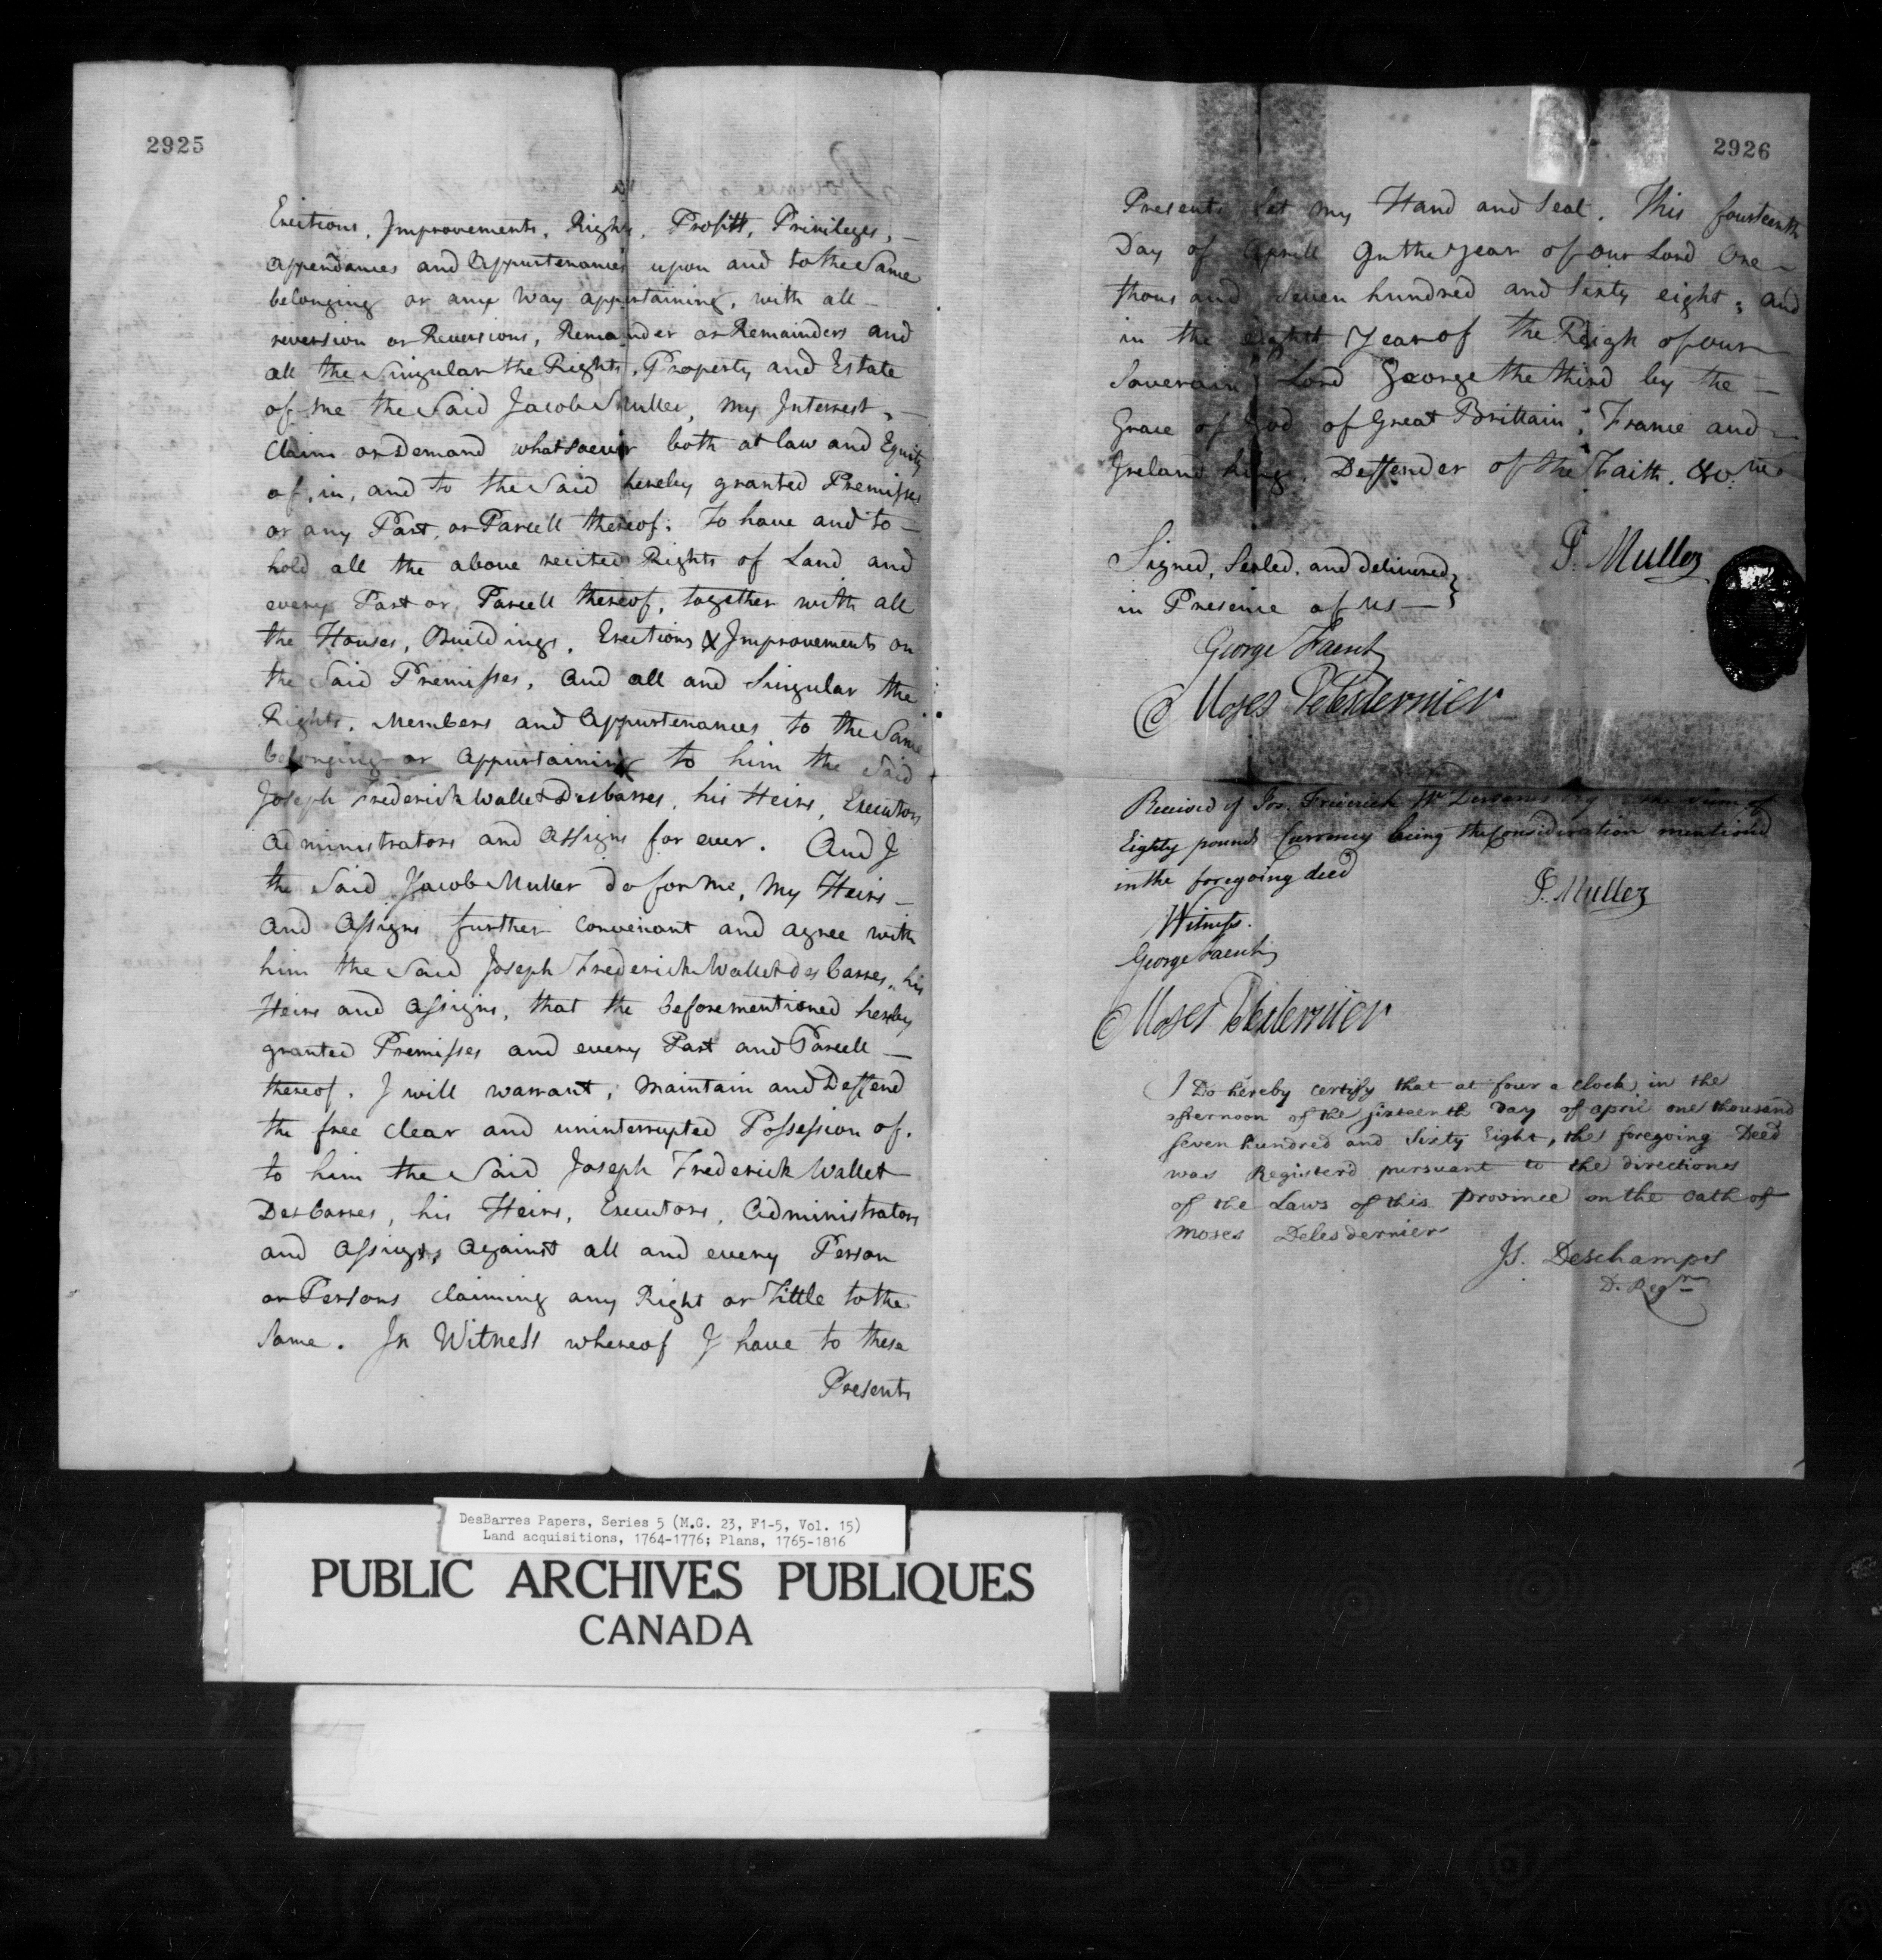 2925
Erections, Improvements, Rights, Profitts, Privileges, —
appendances and Appurtenances upon and to the Same
belonging or any Way appurtaining, with all —
reversion or Reversions, Remainder or Remainders and
all the Singular the Rights, Property and Estate
of me the Said Jacob Muller, my Interrest, —
Claim or Demand whatsoever both at law and Equity
of, in, and to the Said hereby granted Premisses
or any Part, or Parcell thereof. To have and to —
hold all the above recited Rights of Land and
every Part or Parcell thereof, together with all
the Houses, Buildings, Erections & Improvements on
the Said Premisses, and all and Singular the
Rights, Members and Appurtenances to the Same
belonging or Appurtaining to him the Said
Joseph Frederick Wallet Desbarres, his Heirs, Executors
Administrators and Assigns for ever. And I
the Said Jacob Muller do for me, my Heirs —
and Assigns further convenant and agree with
him the Said Joseph Frederick Wallet des barres, his
Heirs and Assigns, that the beforementioned hereby
granted Premisses and every Part and Parcell —
thereof. I will warrant, maintain and Deffend
the free clear and uninterrupted Possession of.
to him the Said Joseph Frederick Wallet
Des barres, his Heirs, Executors, Administrators
and Assigns, against all and every Person
or Persons claiming any Right or Tittle to the
Same. In Witness whereof I have to these
Presents
2926
Presents Set my Hand and Seal. This fourteenth
Day of Aprill In the year of our Lord One —
thousand Seven hundred and Sixty eight, and
in the eight Year of the Reign of our
Soverain Lord George the third by the —
Grace of God of Great Brittain, France and —
Ireland King, Deffender of the Faith. &c.
J. Muller
Signed, Sealed, and delivered
in Presence of us —
George Faesch
Moses Delesdernier
Received of Jos. Friderick Wt Desbarres Esq the Sum of
Eighty pounds Currency being the Consideration mentioned
in the foregoing deed
J. Muller
Witness.
George Faesch
Moses Delesdernier
I Do hereby certify that at four a clock in the
afternoon of the sixteenth Day of april one thousand
seven hundred and Sixty Eight, the foregoing Deed
was Registerd pursuant to the directions
of the Laws of this province on the oath of
Moses Delesdernier
Js. Deschamps
D. Regr
DesBarres Papers, Series 5 (M.G. 23, F1-5, Vol. 15)
Land acquisitions, 1764-1776; Plans, 1765-1816
PUBLIC ARCHIVES PUBLIQUES
CANADA